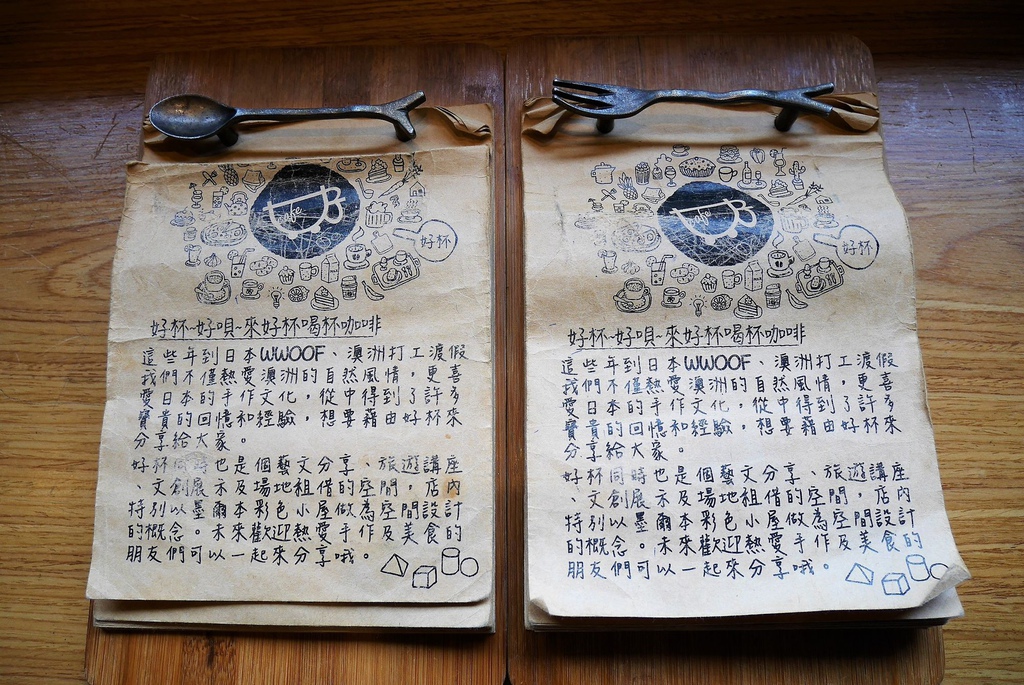 Cafe
好杯
好杯~好唄~來好杯喝杯咖啡
這些年到日本WWOOF、澳洲打工渡假
我們不僅熱愛澳洲的自然風情，更喜
愛日本的手作文化，從中得到了許多
寶貴的回憶和經驗，想要藉由好杯來
分享給大家。
好杯同時也是個藝文分享、旅遊講座
、文創展示及場地租借的空間，店內
特別以墨爾本彩色小屋做為空間設計
的概念。未來歡迎熱愛手作及美食的
朋友們可以一起來分享哦。
Cafe
好杯
好杯~好唄~來好杯喝杯咖啡
這些年到日本WWOOF、澳洲打工渡假
我們不僅熱愛澳洲的自然風情，更喜
愛日本的手作文化，從中得到了許多
寶貴的回憶和經驗，想要藉由好杯來
分享給大家。
好杯同時也是個藝文分享、旅遊講座
、文創展示及場地租借的空間，店內
特別以墨爾本彩色小屋做為空間設計
的概念。未來歡迎熱愛手作及美食的
朋友們可以一起來分享哦。